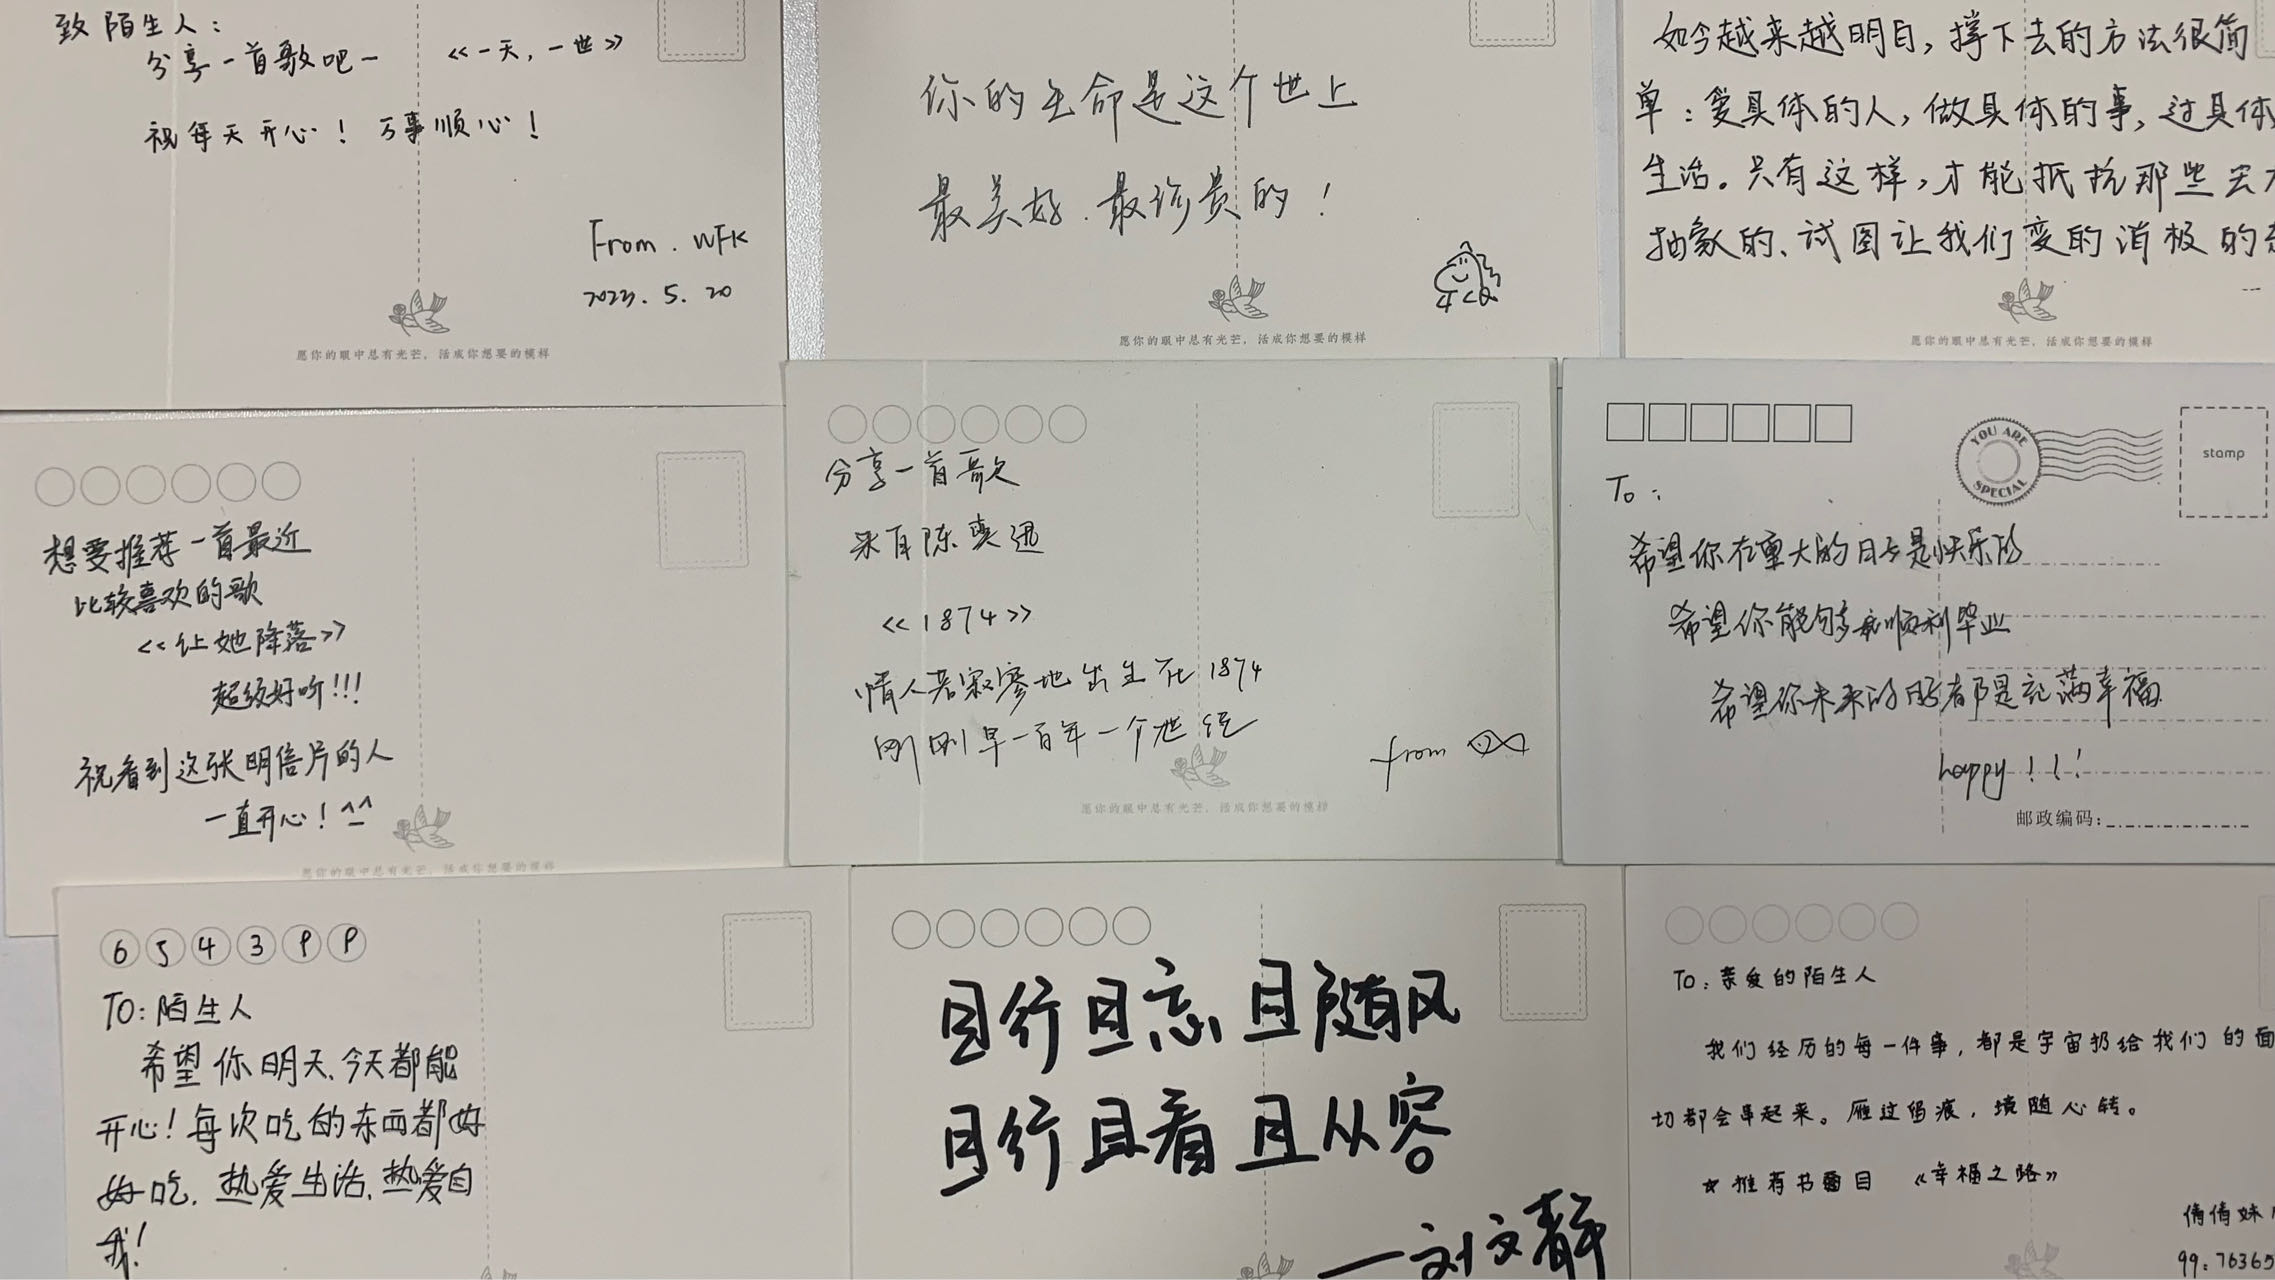 致陌生人：
分享一首歌吧～ 《一天，一世》
祝每天开心！万事顺心！
From. WFK
2023. 5. 20
愿你的眼中总有光芒，活成你想要的模样
你的生命是这个世上
最美好.最珍贵的！
愿你的眼中总有光芒，活成你想要的模样
如今越来越明白，撑下去的方法很简
单：爱具体的人，做具体的事，过具体
生活。只有这样，才能抵抗那些宏大
抽象的、试图让我们变的消极的
愿你的眼中总有光芒，活成你想要的模样
想要推荐一首最近
比较喜欢的歌
《让她降落》
超级好听!!!
祝看到这张明信片的人
一直开心！^_^
愿你的眼中总有光芒，活成你想要的模样
分享一首歌
来自陈奕迅
《1874》
情人若寂寥地出生在1874
刚刚早一百年一个世纪
from
愿你的眼中总有光芒，活成你想要的模样
YOU ARE SPECIAL
stamp
To：
希望你在重大的日子是快乐的
希望你能够顺利毕业
希望你未来的所有都是充满幸福
happy！！！
邮政编码：
6 5 4 3 P P
TO：陌生人
希望你明天、今天都能
开心！每次吃的东西都好
好吃，热爱生活、热爱自
我！
且行且忘且随风
且行且看且从容
——刘文静
TO：亲爱的陌生人
我们经历的每一件事，都是宇宙扔给我们的面
切都会串起来。雁过留痕，境随心转。
☆推荐书目 《幸福之路》
倩倩妹
99：76365